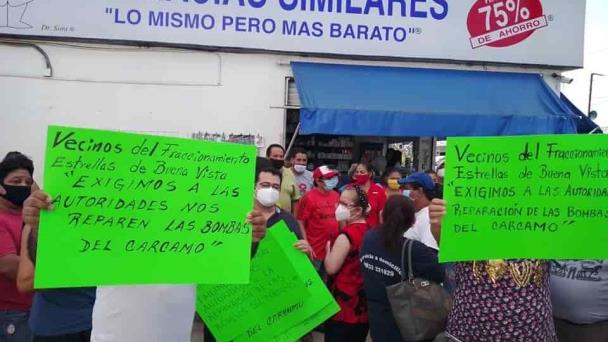 SIMILARES
"LO MISMO PERO MAS BARATO"®
Dr. Simi ®
75%
DE AHORRO
Vecinos del Fraccionamiento
Estrellas de Buena Vista
"EXIGIMOS A LAS
AUTORIDADES NOS
REPAREN LAS BOMBAS
DEL CARCAMO"
Vecinos del Fraccionamien
Estrellas de Buena Vista
"EXIGIMOS A LAS AUTORIDADES
REPARACIÓN DE LAS BOMBAS
DEL CARCAMO"
DEL CARCAMO"
a domicilio